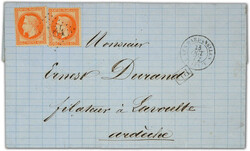 Monsieur
Ernest Durand
filateur à Lavoulte
ardèche